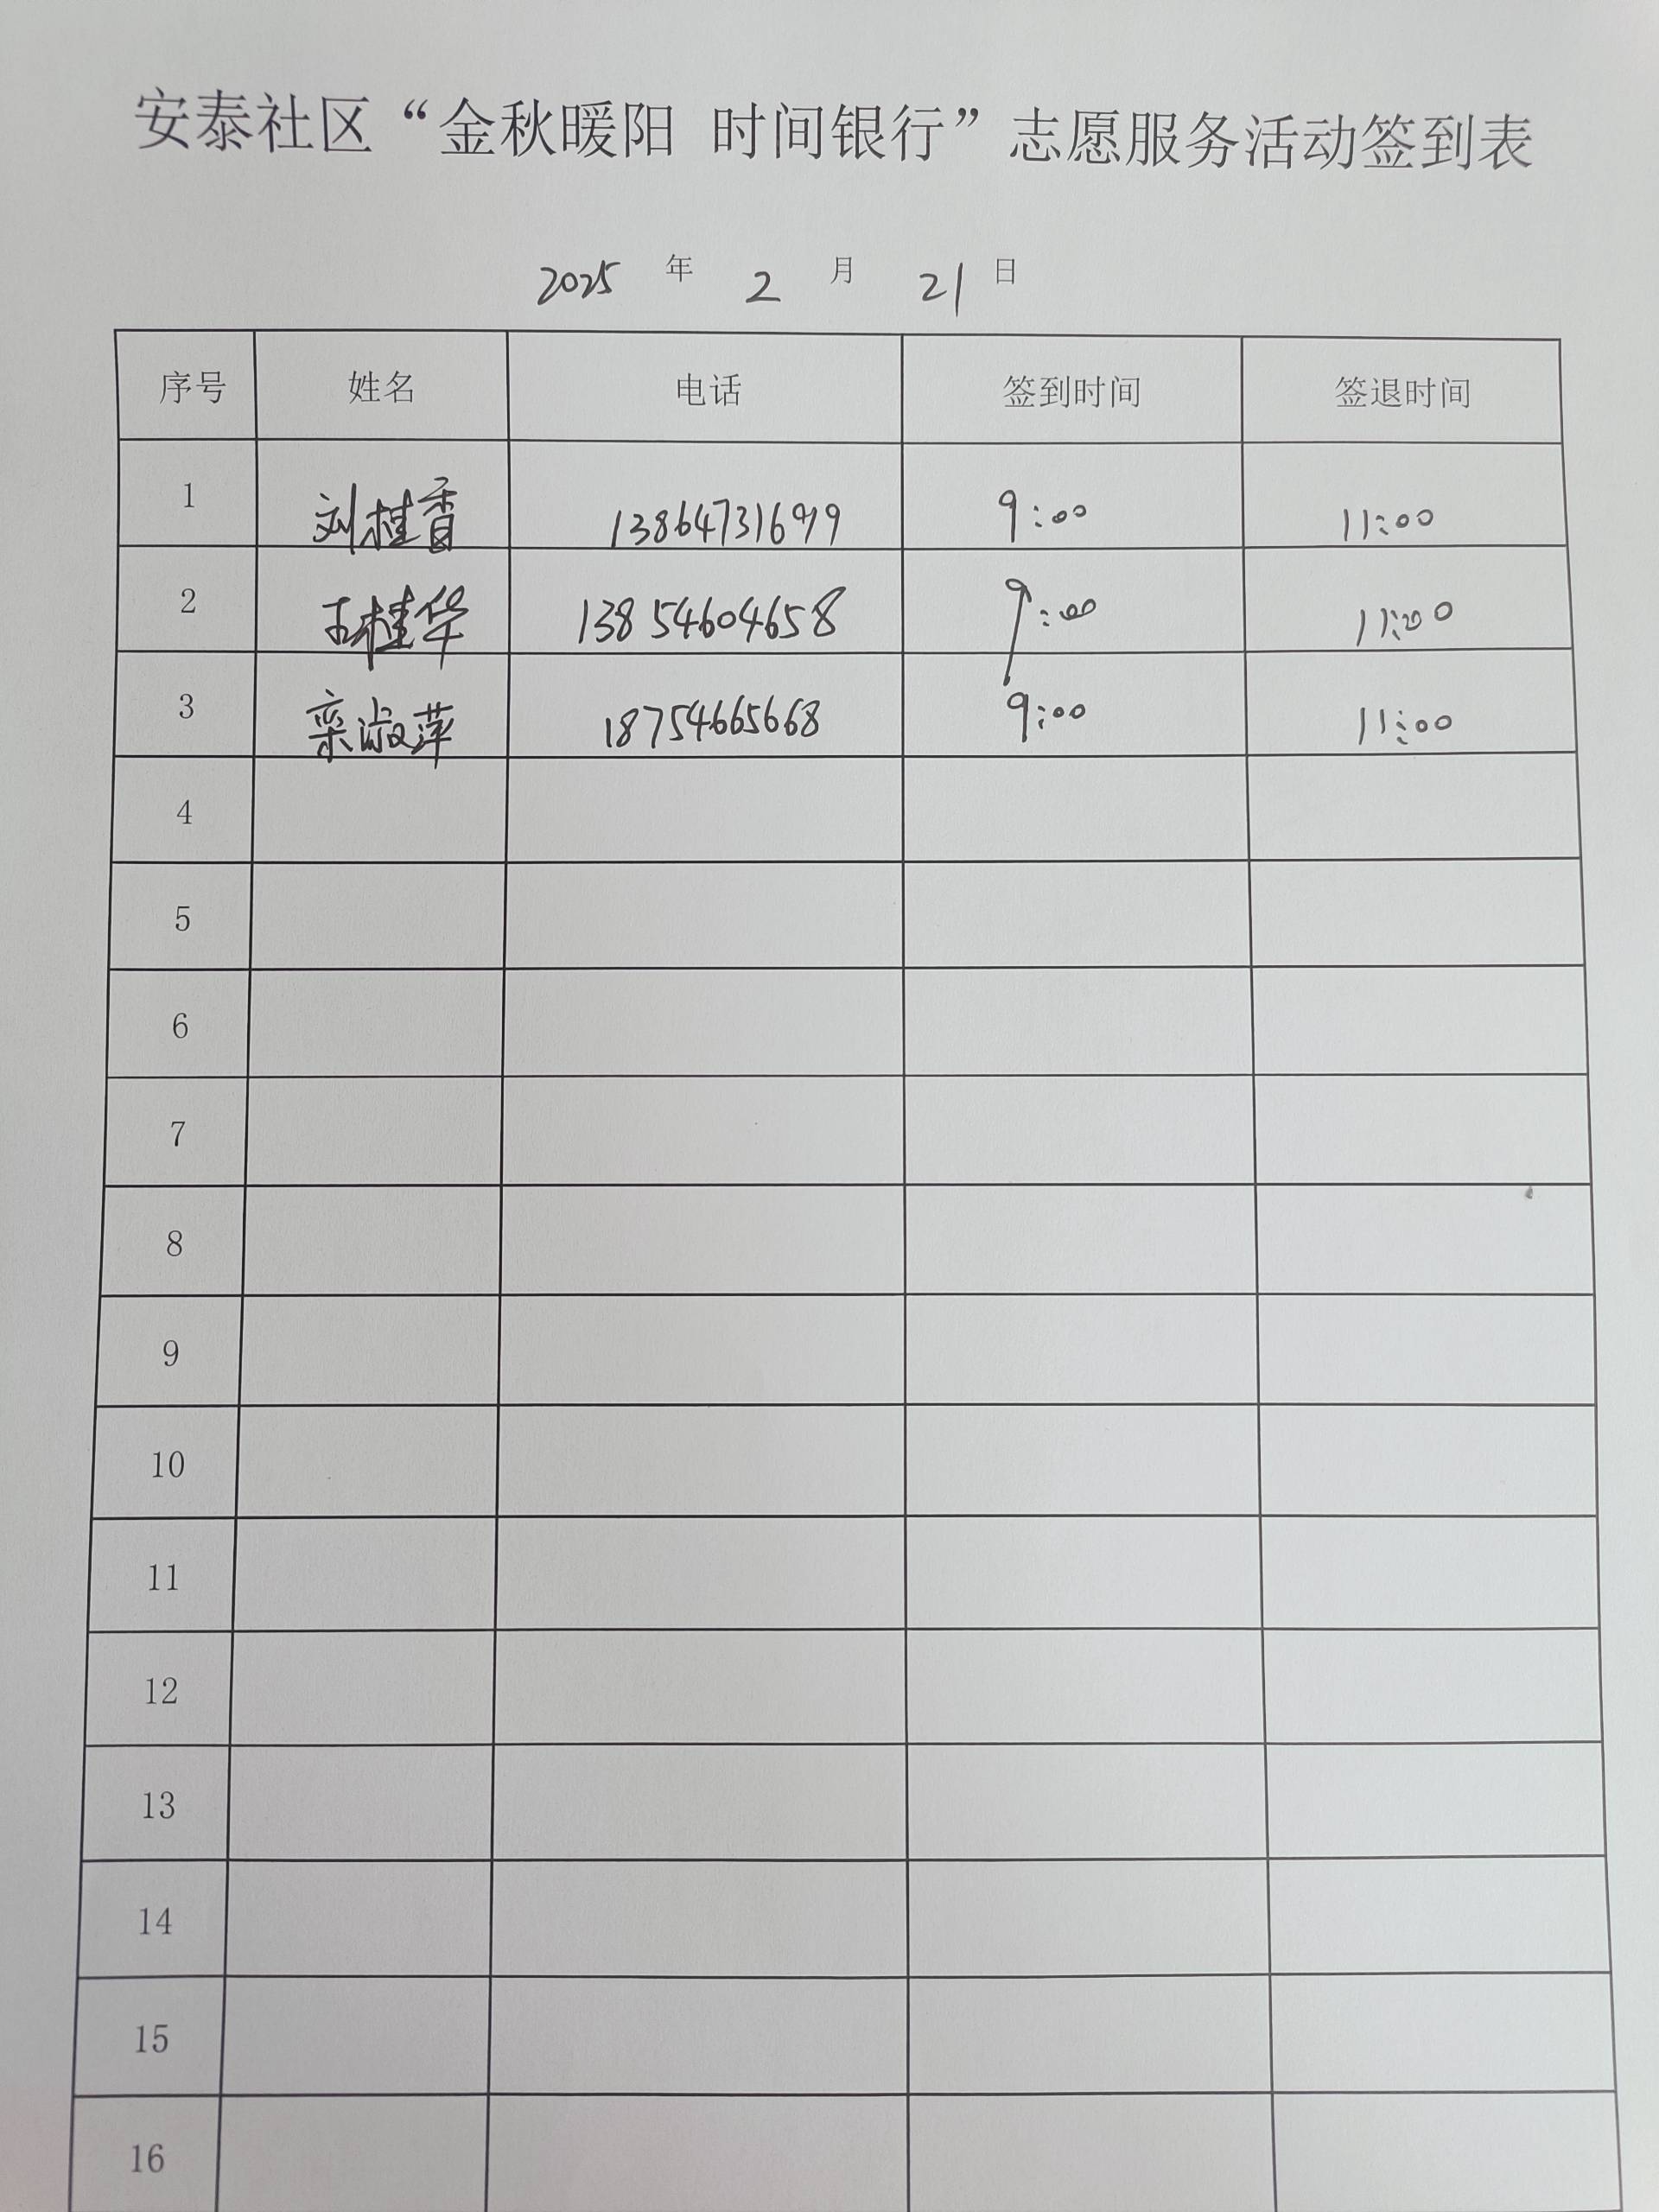 安泰社区“金秋暖阳 时间银行”志愿服务活动签到表
2025 年 2 月 21 日
序号 姓名 电话 签到时间 签退时间
1 刘桂香 13864731699 9:00 11:00
2 王桂华 13854604658 9:00 11:00
3 栾淑萍 18754665668 9:00 11:00
4
5
6
7
8
9
10
11
12
13
14
15
16